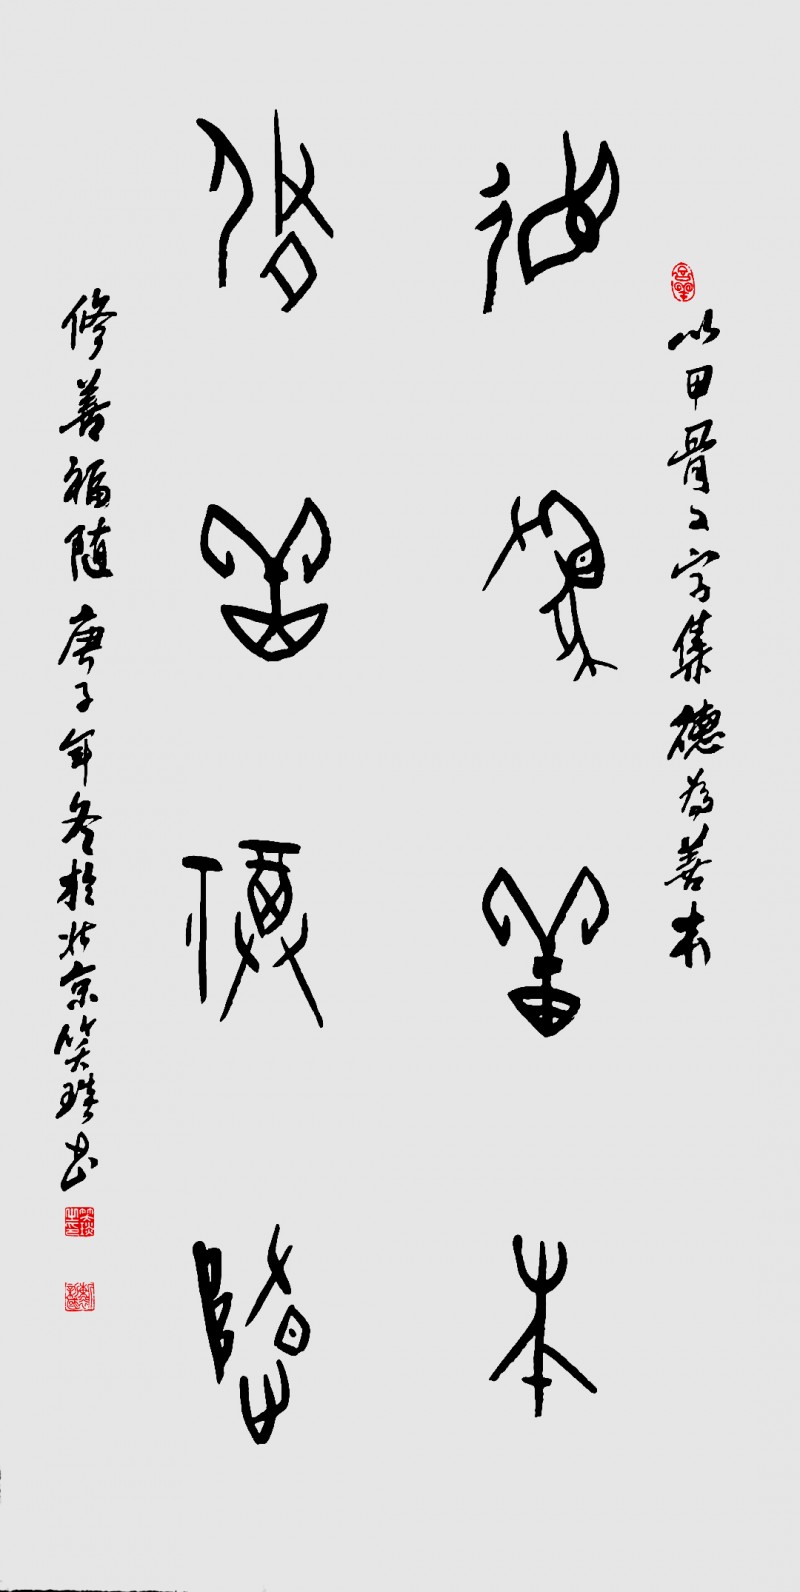 德为善本
修善福随
以甲骨文字集德为善本
修善福随庚子年冬於北京笑琰书